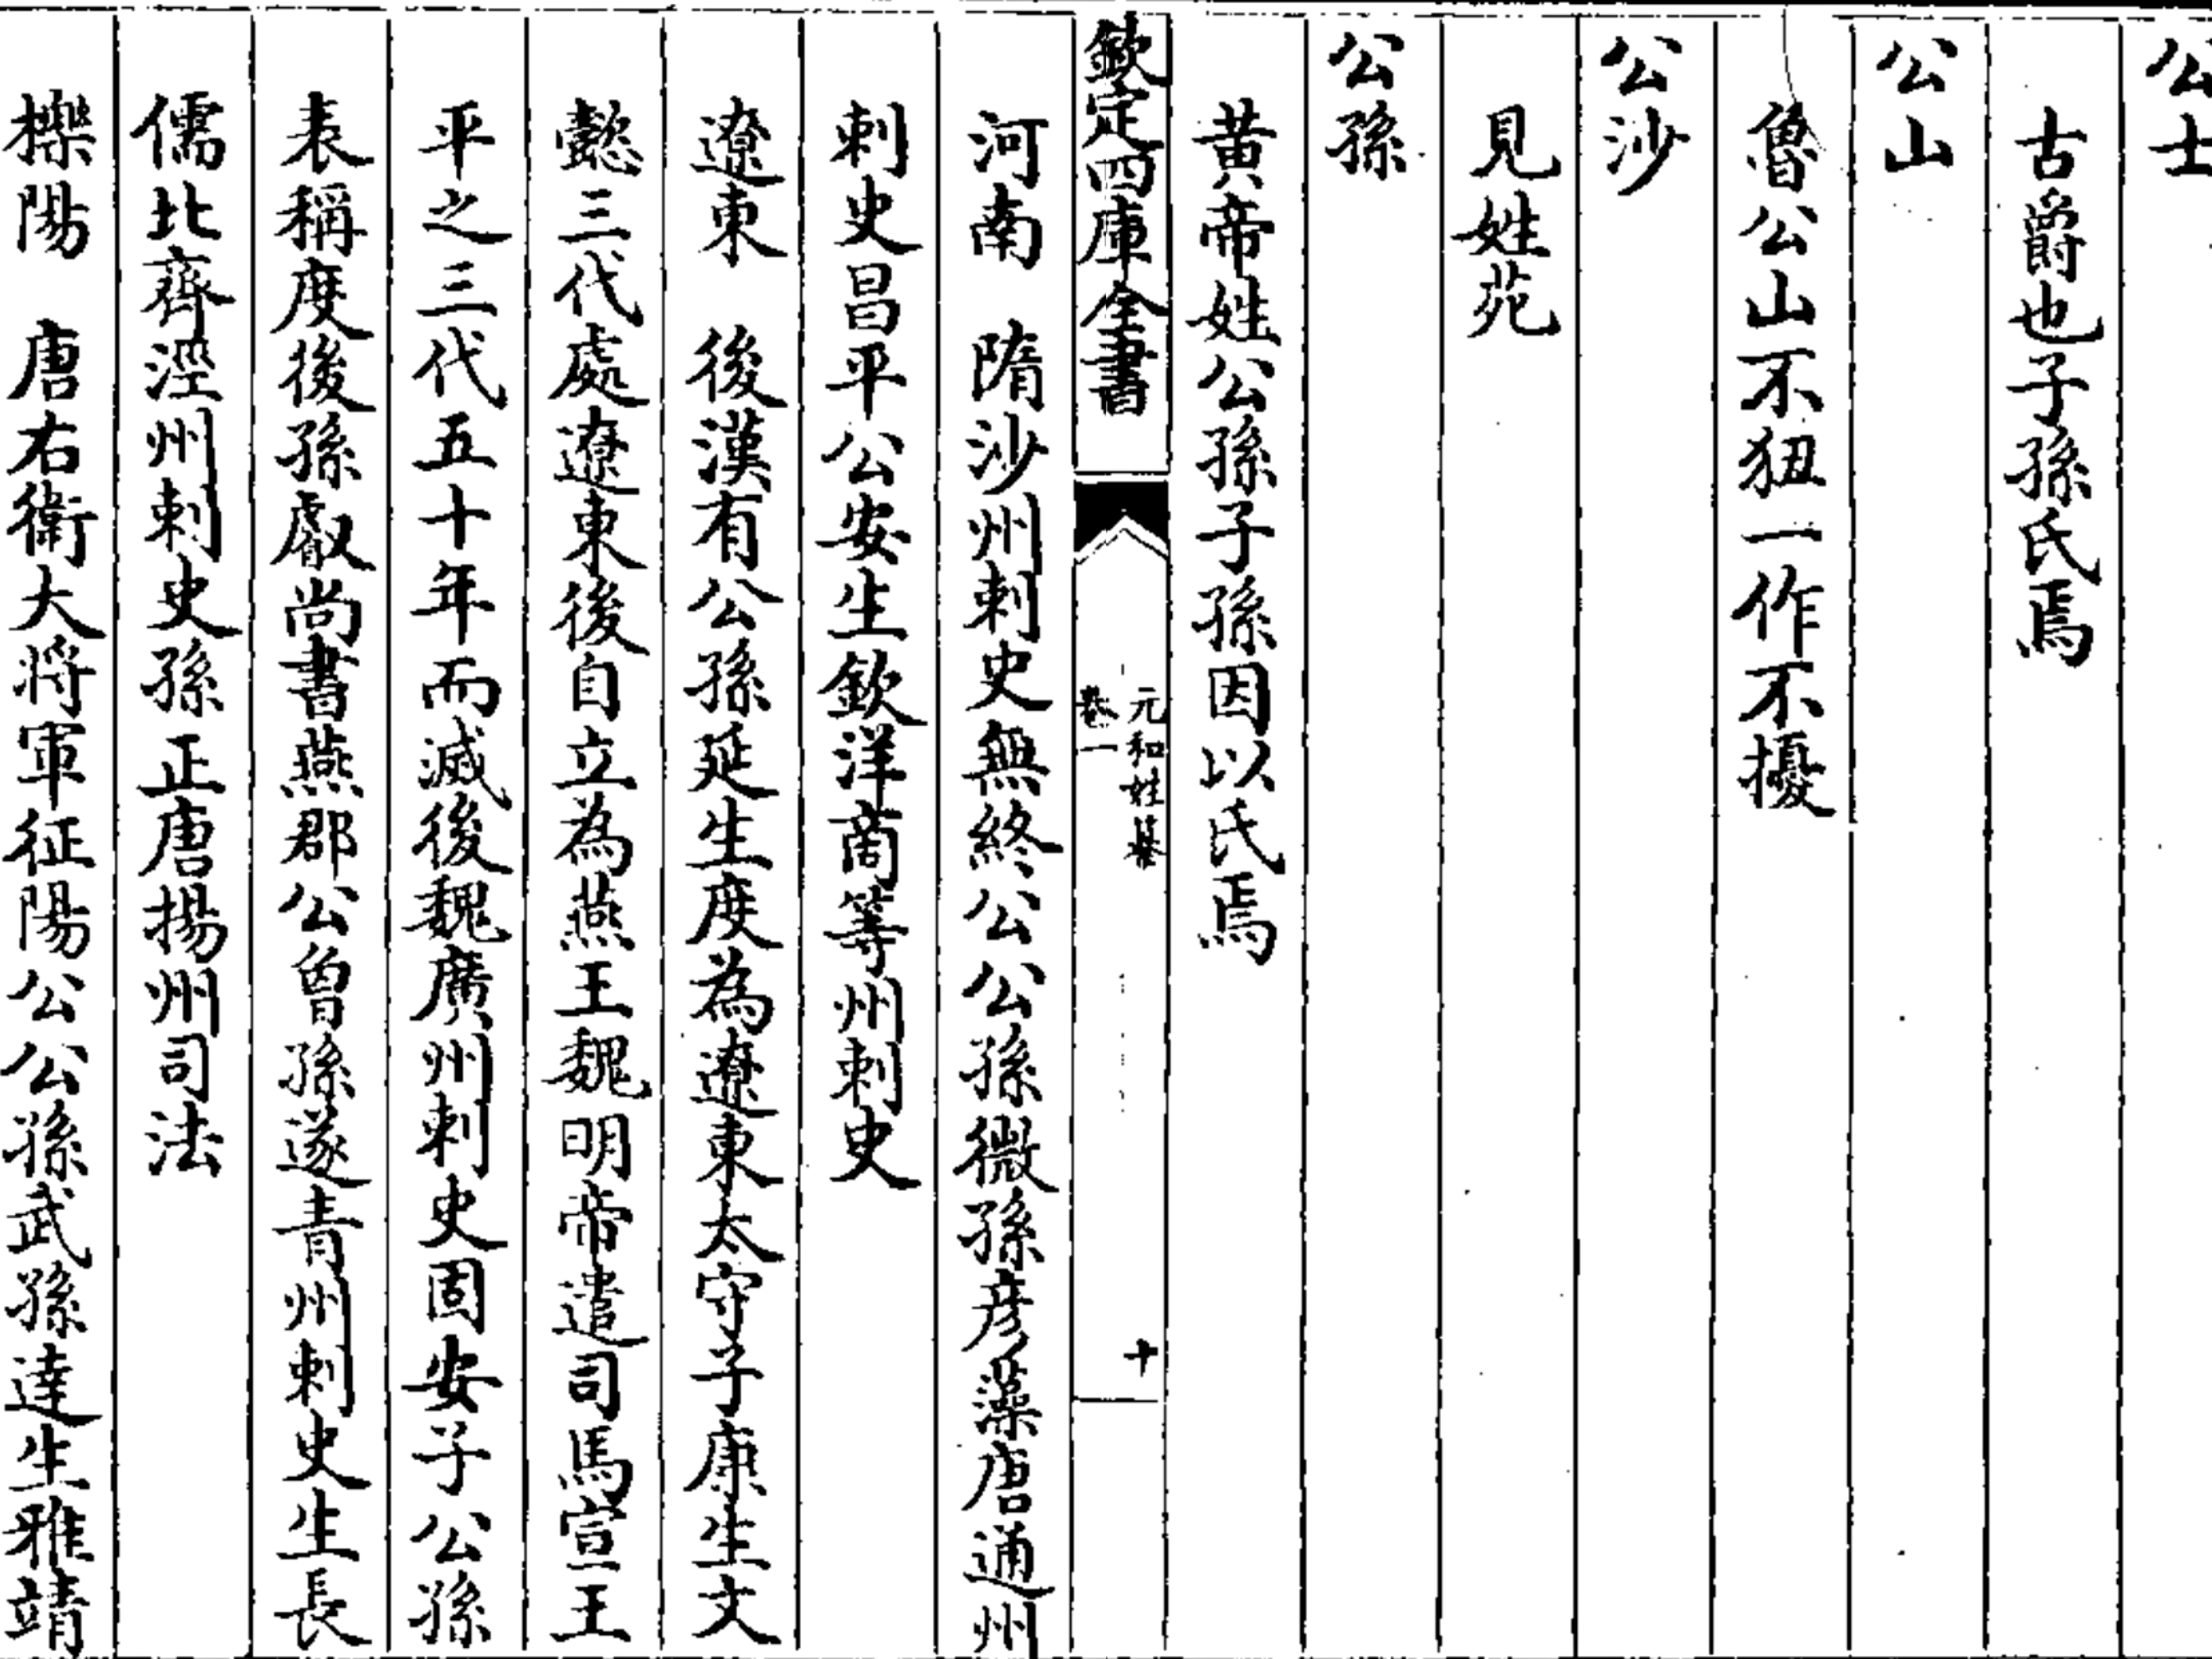 公士
古爵也子孫氏焉
公山
魯公山不狃一作不擾
公沙
見姓苑
公孫
黃帝姓公孫子孫因以氏焉
欽定四庫全書
元和姓纂
卷一
十
河南　隋沙州刺史無終公公孫微孫彦藻唐通州
刺史昌平公安生欽洋商等州刺史
遼東　後漢有公孫延生度為遼東太守子康生文
懿三代處遼東後自立為燕王魏明帝遣司馬宣王
平之三代五十年而滅後魏廣州刺史固安子公孫
表稱度後孫叡尚書燕郡公曾孫遂青州刺史生長
儒北齊涇州刺史孫正唐揚州司法
櫟陽　唐右衛大將軍征陽公公孫武孫達生雅靖